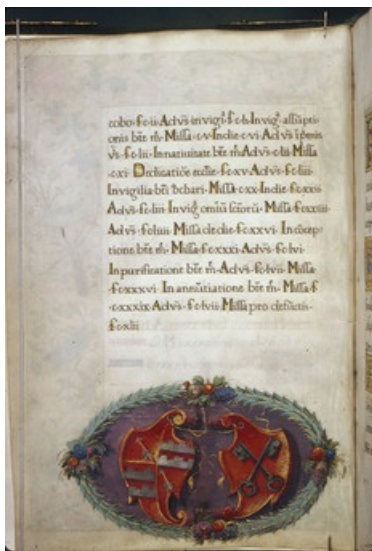 cobo·fc·ii·Adv̄s in vigi̊·f·c·li·In vigi̊·assūpti-
onis bt̄e m̄·Missa·c·v·In die·c·vi·Adv̄s
v̄s·fc·lii·In nativitate bt̄e m̄ Adv̄s·c·lii·Missa
·c·xi·Dedicatiōe ecclīe·fc·xv·Adv̄s·fc·liii·
In vigilia bt̄i Missa·c·xx·In die·fc·xxii·
Adv̄s·fc·liii·In vigi̊ omiū sc̄torū·Missa·fc·xxiiii·
Adv̄s·fc·liiii·Missa de die·fc·xxvi·In concep-
tione bt̄e m̄·Missa·fc·xxxi·Adv̄s·fc·lvi·
In purificatione bt̄e m̄·Adv̄s·fc·lvii·Missa·
·fc·xxxvi·In anūtiatione bt̄e m̄·Missa·f·
·c·xxxix·Adv̄s·fc·lvii·Missa pro defūctis·
fc·xlii